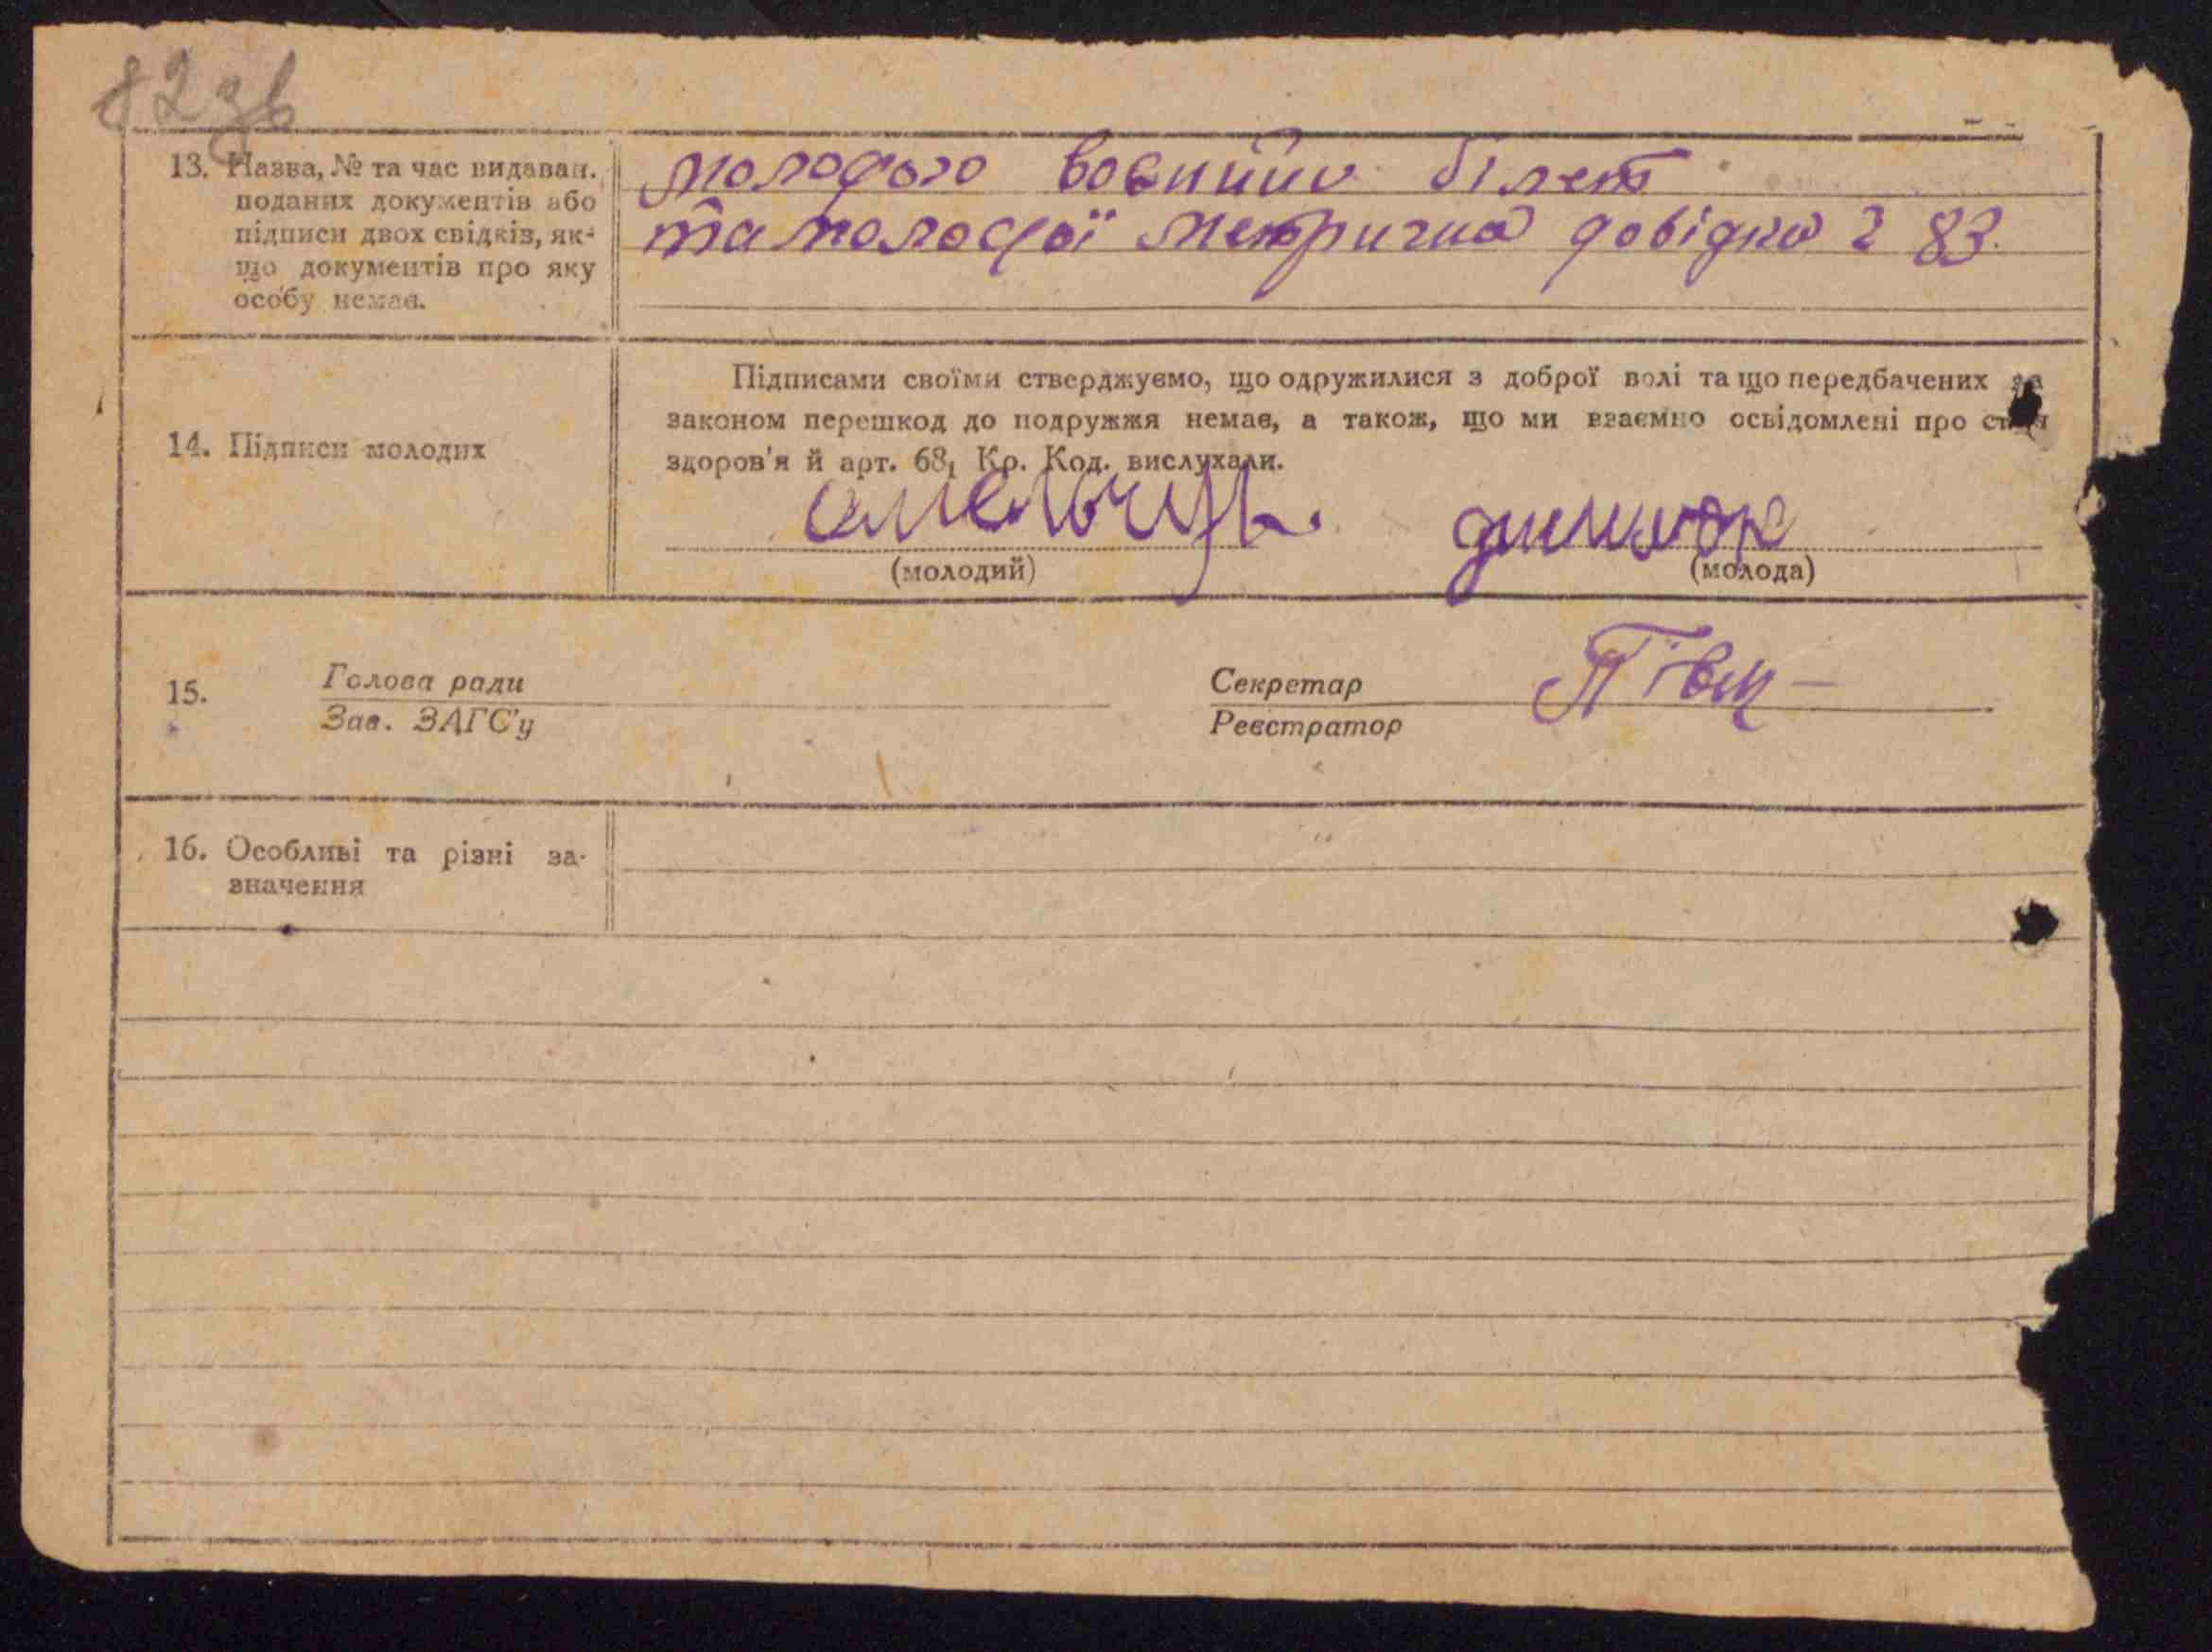 82зв
13. Назва, № та час видаван.
поданих документів або
підписи двох свідків, як-
що документів про яку
особу немає.
молодого воєнний білет
та молодої метрична довідка 2 83.
14. Підписи молодих
Підписами своїми стверджуємо, що одружилися з доброї волі та що передбачених за
законом перешкод до подружжя немає, а також, що ми взаємно освідомлені про стан
здоров'я й арт. 68₁ Кр. Код. вислухали.
(молодий) (молода)
15. Голова ради Секретар
Зав. ЗАГС'у Реєстратор
16. Особливі та різні за-
значення